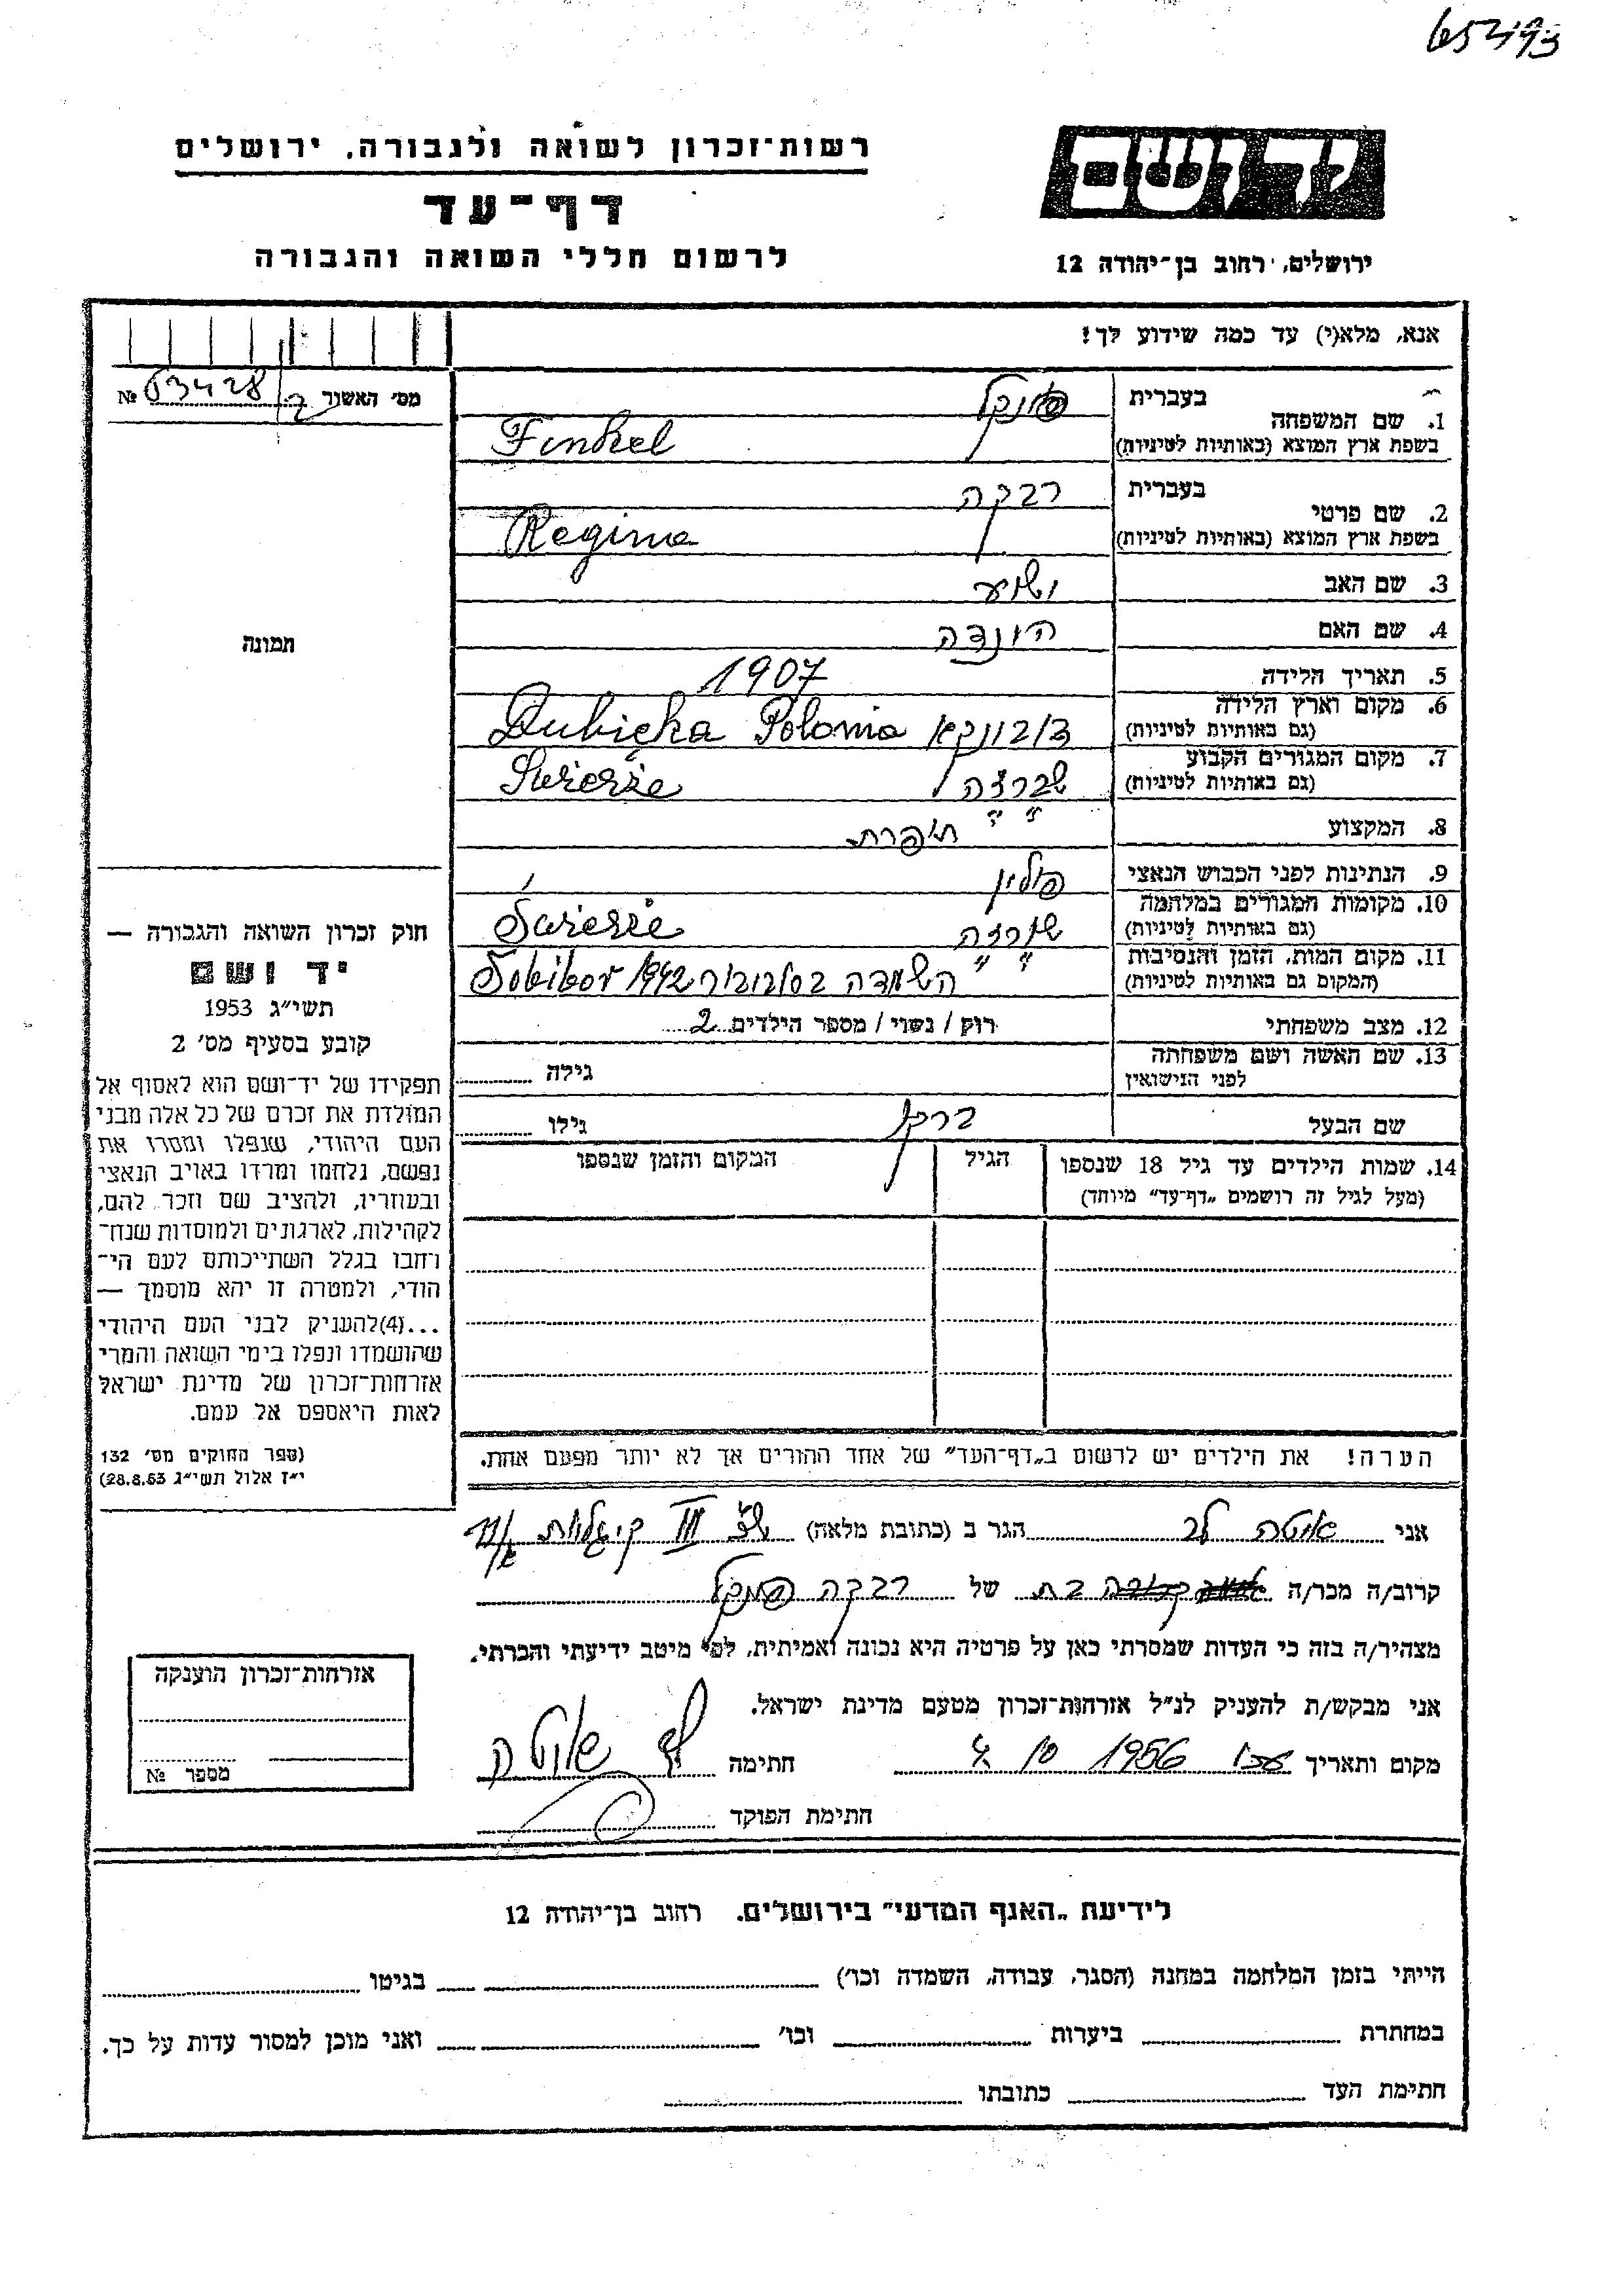 רשות־זכרון לשואה ולגבורה, ירושלים
דף־עד
לרשום חללי השואה והגבורה
יד ושם
ירושלים, רחוב בן־יהודה 12
אנא, מלא(י) עד כמה שידוע לך!
מס׳ האשור № 63428
1. שם המשפחה
בעברית פינקל
בשפת ארץ המוצא (באותיות לטיניות) Finkel
2. שם פרטי
בעברית רבקה
בשפת ארץ המוצא (באותיות לטיניות) Regina
3. שם האב
4. שם האם הינדה
5. תאריך הלידה 1907
6. מקום וארץ הלידה
(גם באותיות לטיניות) Dubięka Polonia
7. מקום המגורים הקבוע
(גם באותיות לטיניות) Świerże
8. המקצוע תופרת
9. הנתינות לפני הכבוש הנאצי פולין
10. מקומות המגורים במלחמה
(גם באותיות לטיניות) Świerże
11. מקום המות, הזמן והנסיבות
(המקום גם באותיות לטיניות) השמדה בסוביבור 1942 Sobibor
12. מצב משפחתי רוק / נשוי / מספר הילדים 2
13. שם האשה ושם משפחתה
לפני הנישואין
גילה
שם הבעל ברקו
גילו
14. שמות הילדים עד גיל 18 שנספו
(מעל לגיל זה רושמים „דף־עד” מיוחד)
הגיל
המקום והזמן שנספו
הערה! את הילדים יש לרשום ב„דף־העד” של אחד ההורים אך לא יותר מפעם אחת.
תמונה
חוק זכרון השואה והגבורה —
יד ושם
תשי״ג 1953
קובע בסעיף מס׳ 2
תפקידו של יד־ושם הוא לאסוף אל
המולדת את זכרם של כל אלה מבני
העם היהודי, שנפלו ומסרו את
נפשם, נלחמו ומרדו באויב הנאצי
ובעוזריו, ולהציב שם וזכר להם,
לקהילות, לארגונים ולמוסדות שנח־
רחבו בגלל השתייכותם לעם הי־
הודי, ולמטרה זו יהא מוסמך —
...(4) להעניק לבני העם היהודי
שהושמדו ונפלו בימי השואה והמרי
אזרחות־זכרון של מדינת ישראל
לאות היאספם אל עמם.
(ספר החוקים מס׳ 132
י״ז אלול תשי״ג 28.8.53)
אני הגר ב (כתובת מלאה)
קרוב/ה מכר/ה בת של רבקה פינקל
מצהיר/ה בזה כי העדות שמסרתי כאן על פרטיה היא נכונה ואמיתית, לפי מיטב ידיעתי והכרתי.
אני מבקש/ת להעניק לנ״ל אזרחות־זכרון מטעם מדינת ישראל.
מקום ותאריך 1956 חתימה
חתימת הפוקד
אזרחות־זכרון הוענקה
מספר №
לידיעת „האגף המדעי” בירושלים. רחוב בן־יהודה 12
הייתי בזמן המלחמה במחנה (הסגר, עבודה, השמדה וכו׳) בגיטו
במחתרת ביערות וכו׳ ואני מוכן למסור עדות על כך.
חתימת העד כתובתו